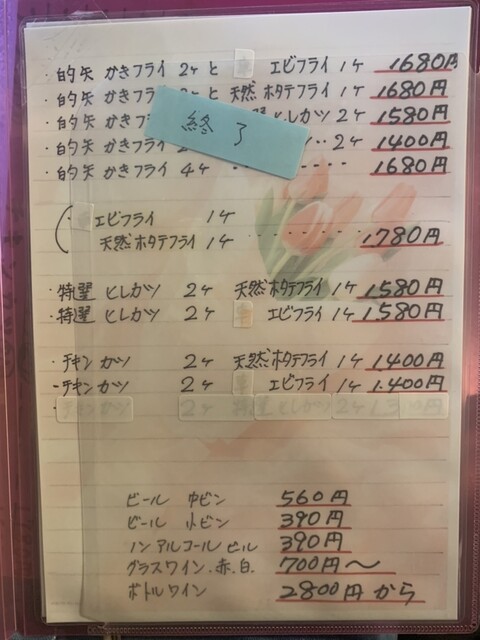 ・的矢 かきフライ 2ヶと エビフライ 1ヶ 1680円
・的矢 かきフライ と 天然ホタテフライ 1ヶ 1680円
・的矢 かきフライ ヒレカツ 2ヶ 1580円
・的矢 かきフライ 2ヶ 1400円
・的矢 かきフライ 4ヶ ・・・・・・・ 1680円
終了
エビフライ 1ヶ
天然ホタテフライ 1ヶ ・・・・・・・ 1780円
・特選 ヒレカツ 2ヶ 天然ホタテフライ 1ヶ 1580円
・特選 ヒレカツ 2ヶ エビフライ 1ヶ 1580円
・チキンカツ 2ヶ 天然ホタテフライ 1ヶ 1400円
・チキンカツ 2ヶ エビフライ 1ヶ 1.400円
チキンカツ 2ヶ ヒレカツ 2ヶ 円
ビール 中ビン 560円
ビール 小ビン 390円
ノンアルコールビール 390円
グラスワイン.赤.白. 700円〜
ボトルワイン 2800円から